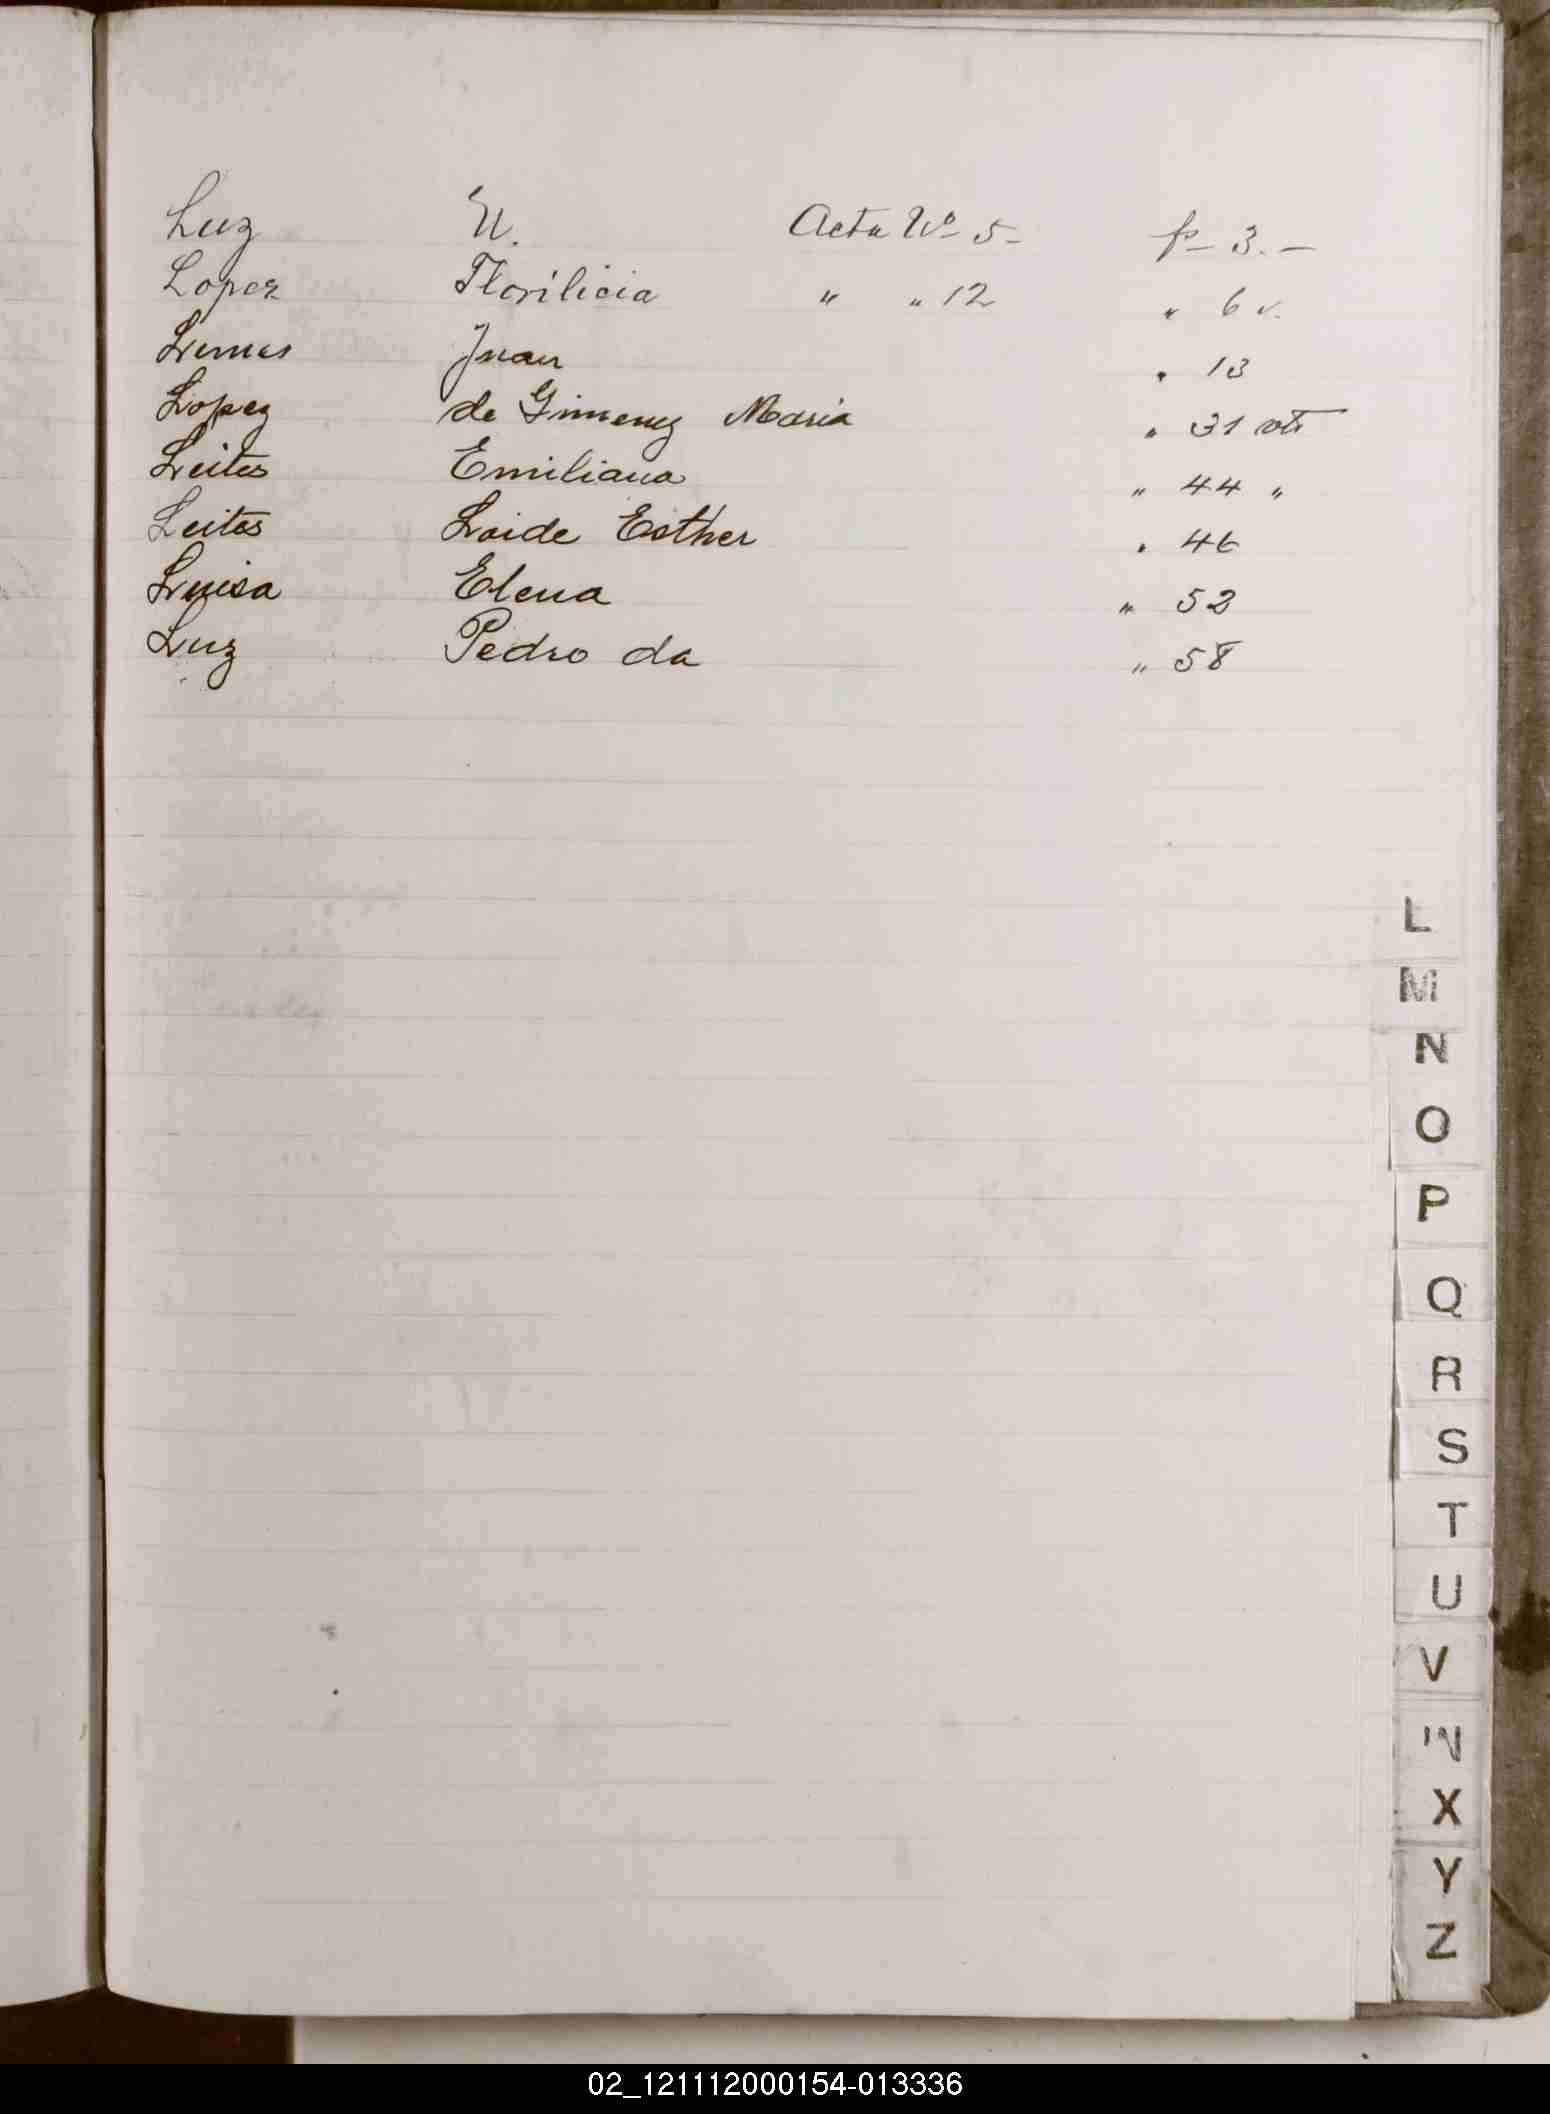 Luz N. Acta Nº 5- f- 3.-
Lopez Florilicia " " 12 " 6 v.
Lemes Juan " 13
Lopez de Gimenez Maria " 31 vta
Leites Emiliana " 44 "
Leites Loide Esther " 46
Luisa Elena " 52
Luz Pedro da " 58
L
M
N
O
P
Q
R
S
T
U
V
W
X
Y
Z
02_121112000154-013336